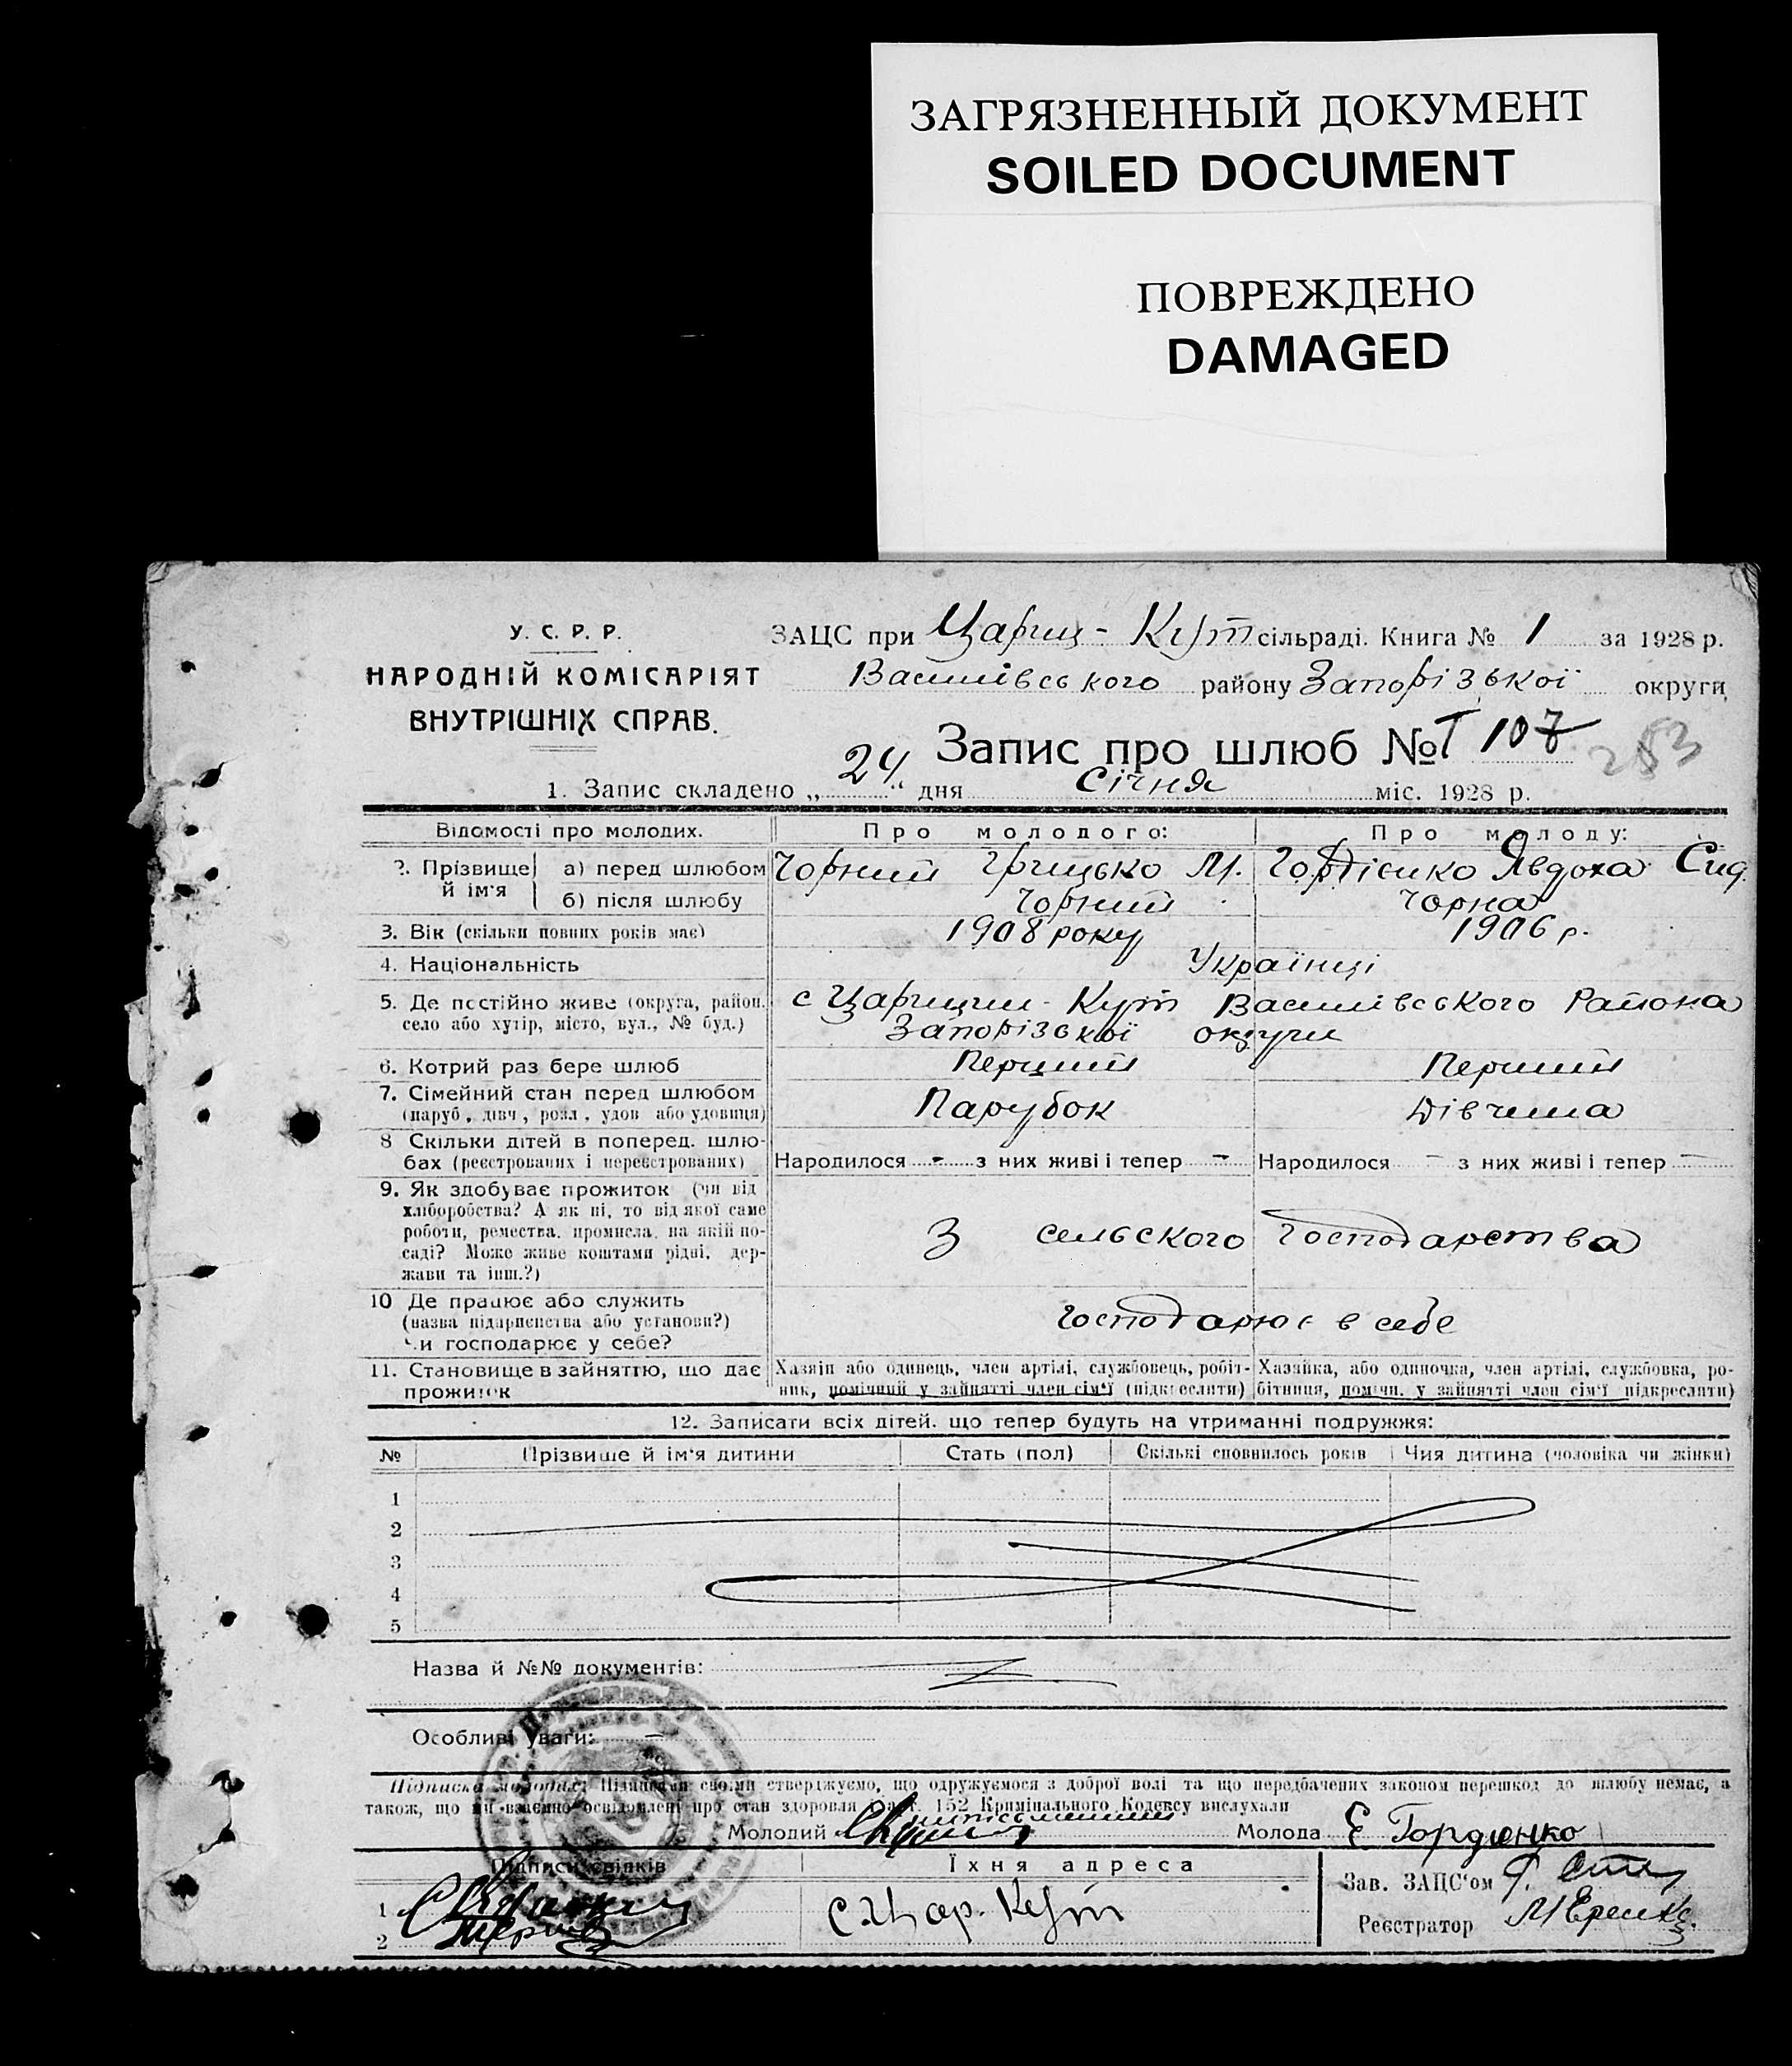 ЗАГРЯЗНЕННЫЙ ДОКУМЕНТ
SOILED DOCUMENT
ПОВРЕЖДЕНО
DAMAGED
У. С. Р. Р.
НАРОДНІЙ КОМІСАРІЯТ
ВНУТРІШНІХ СПРАВ.
ЗАЦС при Цариц- Кут сільраді. Книга № 1 за 1928 р.
Василівського району Запорізької округи
Запис про шлюб № 107
253
1. Запис складено „24“ дня Січня міс. 1928 р.
Відомості про молодих. Про молодого: Про молоду:
2. Прізвище й ім'я а) перед шлюбом Чорний Грицько М. Гордієнко Явдоха Сид.
б) після шлюбу Чорний Чорна
3. Вік (скільки повних років має) 1908 року 1906 р.
4. Національність Українці
5. Де постійно живе (округа, район, с Царицин-Кут Василівського Района
село або хутір, місто, вул., № буд.) Запорізької округи
6. Котрий раз бере шлюб Перший Перший
7. Сімейний стан перед шлюбом Парубок Дівчина
(паруб., дівч., розл., удов. або удовиця)
8 Скільки дітей в поперед. шлю-
бах (реєстрованих і нереєстрованих) Народилося - з них живі і тепер - Народилося - з них живі і тепер -
9. Як здобуває прожиток (чи від
хліборобства? А як ні, то від якої саме
роботи, ремества, промисла, на якій по- З сельского господарства
саді? Може живе коштами рідні, дер-
жави та інш.?)
10 Де працює або служить
(назва підприєнства або установи?) Господарює в себе
Чи господарює у себе?
11. Становище в зайняттю, що дає Хазяїн або одинець, член артілі, службовець, робіт- Хазяйка, або одиночка, член артілі, службовка, ро-
прожиток ник, помічний у зайнятті член сім'ї (підкреслити) бітниця, помічн. у зайнятті член сім'ї підкреслити)
12. Записати всіх дітей, що тепер будуть на утриманні подружжя:
№ Прізвище й ім'я дитини Стать (пол) Скількі сповнилось років Чия дитина (чоловіка чи жінки)
1
2
3
4
5
Назва й №№ документів:
Особливі уваги: —
Підписка молодих: Підписами своїми стверджуємо, що одружуємося з доброї волі та що передбачених законом перешкод до шлюбу немає, а
також, що ми взаємно освідомлені про стан здоровля 152 Кримінального Кодексу вислухали
Молодий Молода Є Гордієнко
Підписи свідків Їхня адреса Зав. ЗАЦС'ом
1 с. Цар. Кут Реєстратор
2